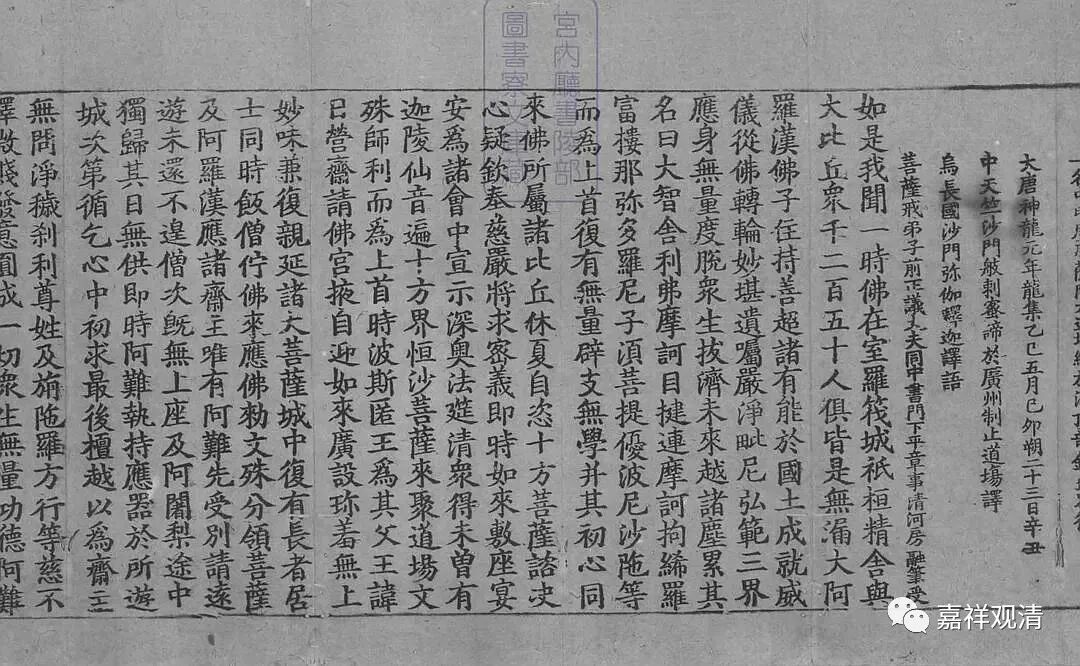 大唐神龍元年龍集乙巳五月己卯朔二十三日辛丑
中天竺沙門般剌蜜諦於廣州制止道場譯
烏長國沙門弥伽釋迦譯語
菩薩戒弟子前正議大夫同中書門下平章事清河房融筆受
如是我聞一時佛在室羅筏城祇桓精舍與
大比丘衆千二百五十人俱皆是無漏大阿
羅漢佛子住持善超諸有能於國土成就威
儀從佛轉輪妙堪遺囑嚴淨毗尼弘範三界
應身無量度脫衆生拔濟未來越諸塵累其
名曰大智舍利弗摩訶目揵連摩訶拘絺羅
富樓那弥多羅尼子須菩提優波尼沙陁等
而爲上首復有無量辟支無學并其初心同
來佛所屬諸比丘休夏自恣十方菩薩諮决
心疑欽奉慈嚴將求密義即時如來敷座宴
安爲諸會中宣示深奥法筵清衆得未曽有
迦陵仙音遍十方界恒沙菩薩來聚道場文
殊師利而爲上首時波斯匿王爲其父王諱
日營齋請佛宮掖自迎如來廣設珎羞無上
妙味兼復親延諸大菩薩城中復有長者居
士同時飯僧佇佛來應佛勑文殊分領菩薩
及阿羅漢應諸齋主唯有阿難先受別請遠
遊未還不遑僧次旣無上座及阿闍梨途中
獨歸其日無供即時阿難執持應器於所遊
城次第循乞心中初求最後檀越以爲齋主
無問淨穢刹利尊姓及旃陁羅方行等慈不
擇微賤發意圓成一切衆生無量功德阿難
宮內廳書陵部
圖書寮文庫藏
嘉祥观清